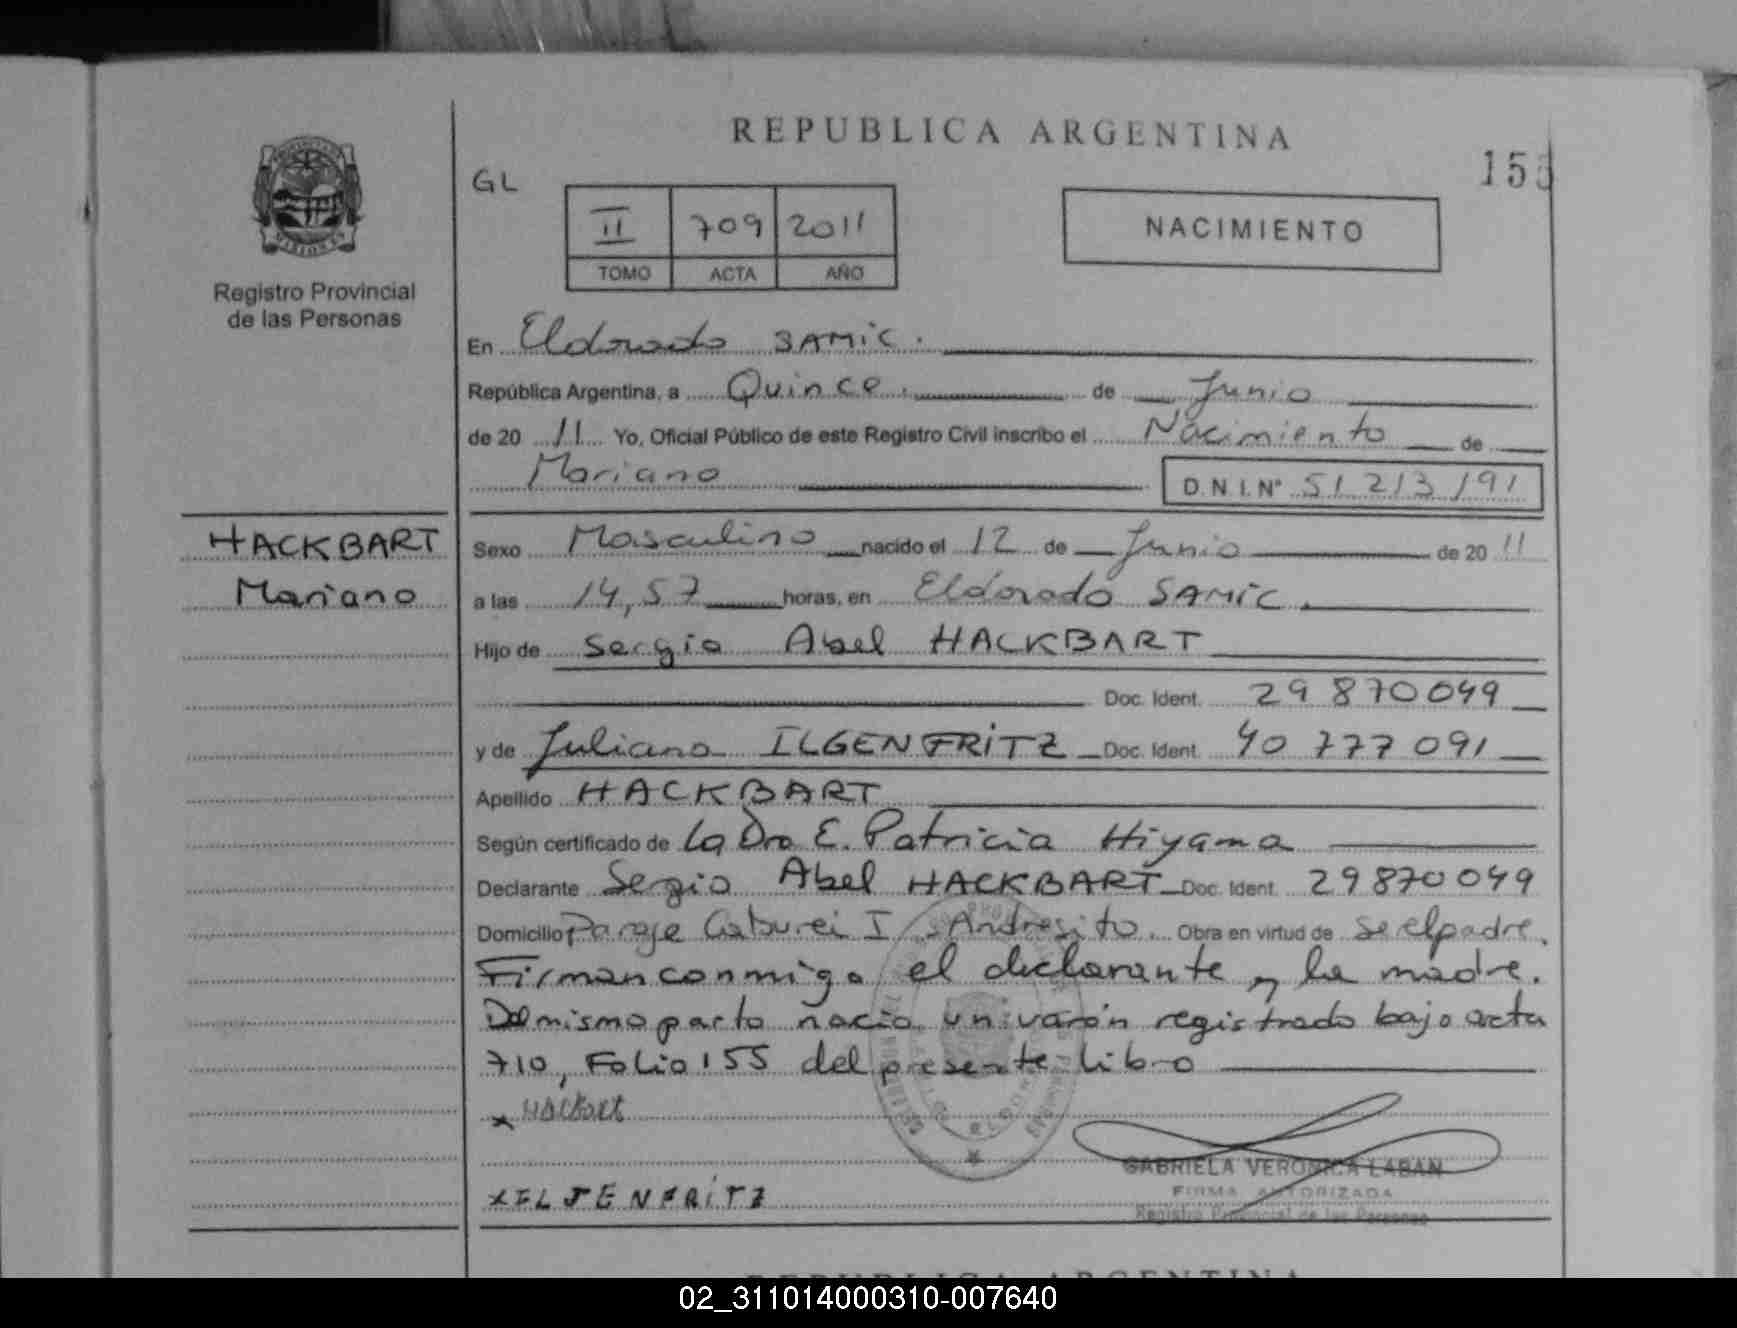 REPUBLICA ARGENTINA
155
GL
II 709 2011
TOMO ACTA AÑO
NACIMIENTO
Registro Provincial
de las Personas
En Eldorado SAMIC.
República Argentina, a Quince. de Junio
de 20 11 Yo, Oficial Público de este Registro Civil inscribo el Nacimiento de
Mariano D.N.I. N° 51 213 191
HACKBART
Mariano
Sexo Masculino nacido el 12 de Junio de 20 11
a las 14,57 horas, en Eldorado SAMIC.
Hijo de Sergio Abel HACKBART
Doc. Ident. 29 870 049
y de Juliana ILGENFRITZ Doc. Ident. 40 777 091
Apellido HACKBART
Según certificado de La Dra E. Patricia Hiyama
Declarante Sergio Abel HACKBART Doc. Ident. 29870049
Domicilio Paraje Caburei I Andresito. Obra en virtud de Se el padre.
Firman conmigo el declarante y la madre.
Del mismo parto nacio un varón registrado bajo acta
710, Folio 155 del presente libro
x Hackbart
GABRIELA VERONICA LABAN
FIRMA AUTORIZADA
Registro Provincial de las Personas
x ELJENFRITZ
REPUBLICA ARGENTINA
02_311014000310-007640